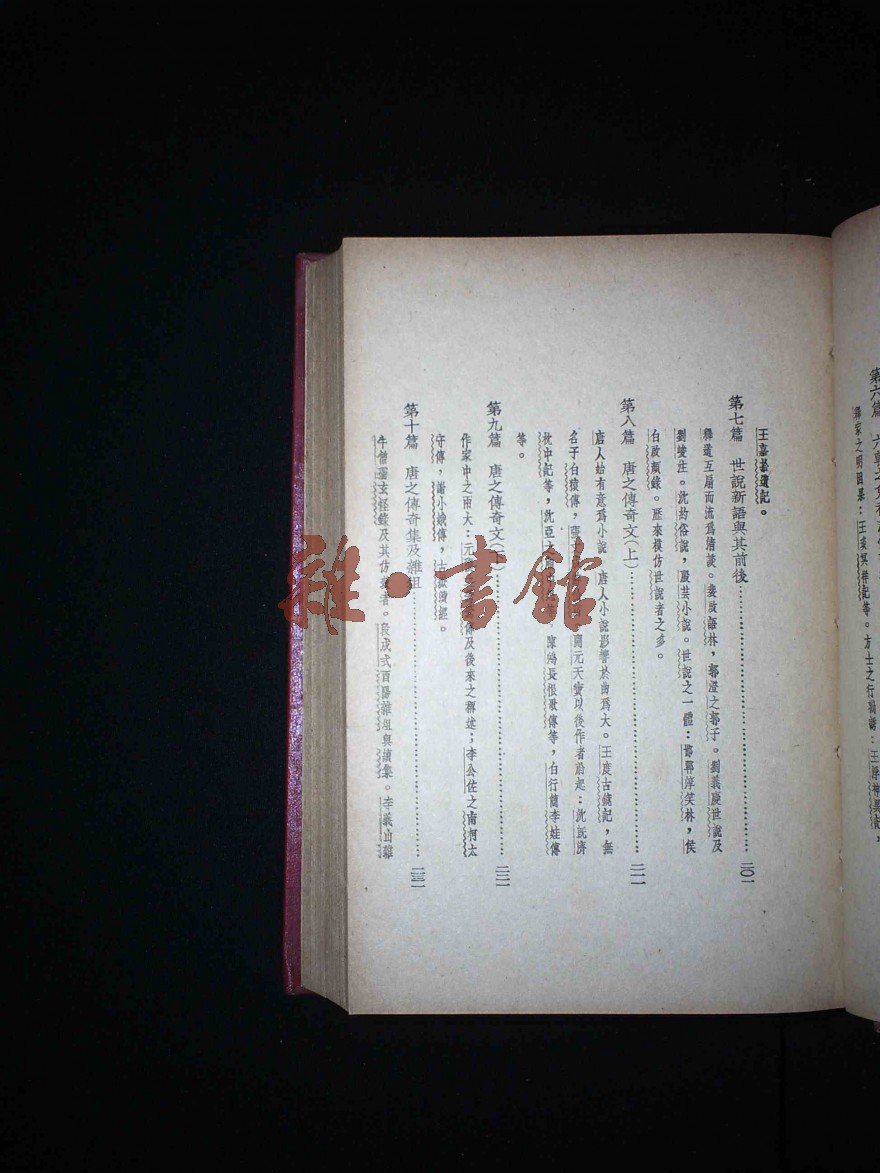 第六篇
釋家之明因果：王琰冥祥記等。方士之行
王嘉拾遺記。
第七篇 世說新語與其前後……二〇一
釋道互扇而流爲清談。裴啟語林，郭澄之郭子。劉義慶世說及
劉峻注。沈約俗說，殷芸小說。世說之一體：邯鄲淳笑林，侯
白啟顏錄。歷來模仿世說者之多。
第八篇 唐之傳奇文(上)……二一一
唐人始有意爲小說。唐人小說影響於曲爲大。王度古鏡記，無
名子白猿傳，開元天寶以後作者蔚起：沈既濟
枕中記等，沈亞之 陳鴻長恨歌傳等，白行簡李娃傳
等。
第九篇 唐之傳奇文(下)……二二一
作家中之兩大：元 傳及後來之稱述；李公佐之南柯太
守傳，謝小娥傳，古嶽瀆經。
第十篇 唐之傳奇集及雜俎……二三一
牛僧孺玄怪錄及其仿 者。段成式酉陽雜俎與續集。李義山雜
雜·書館